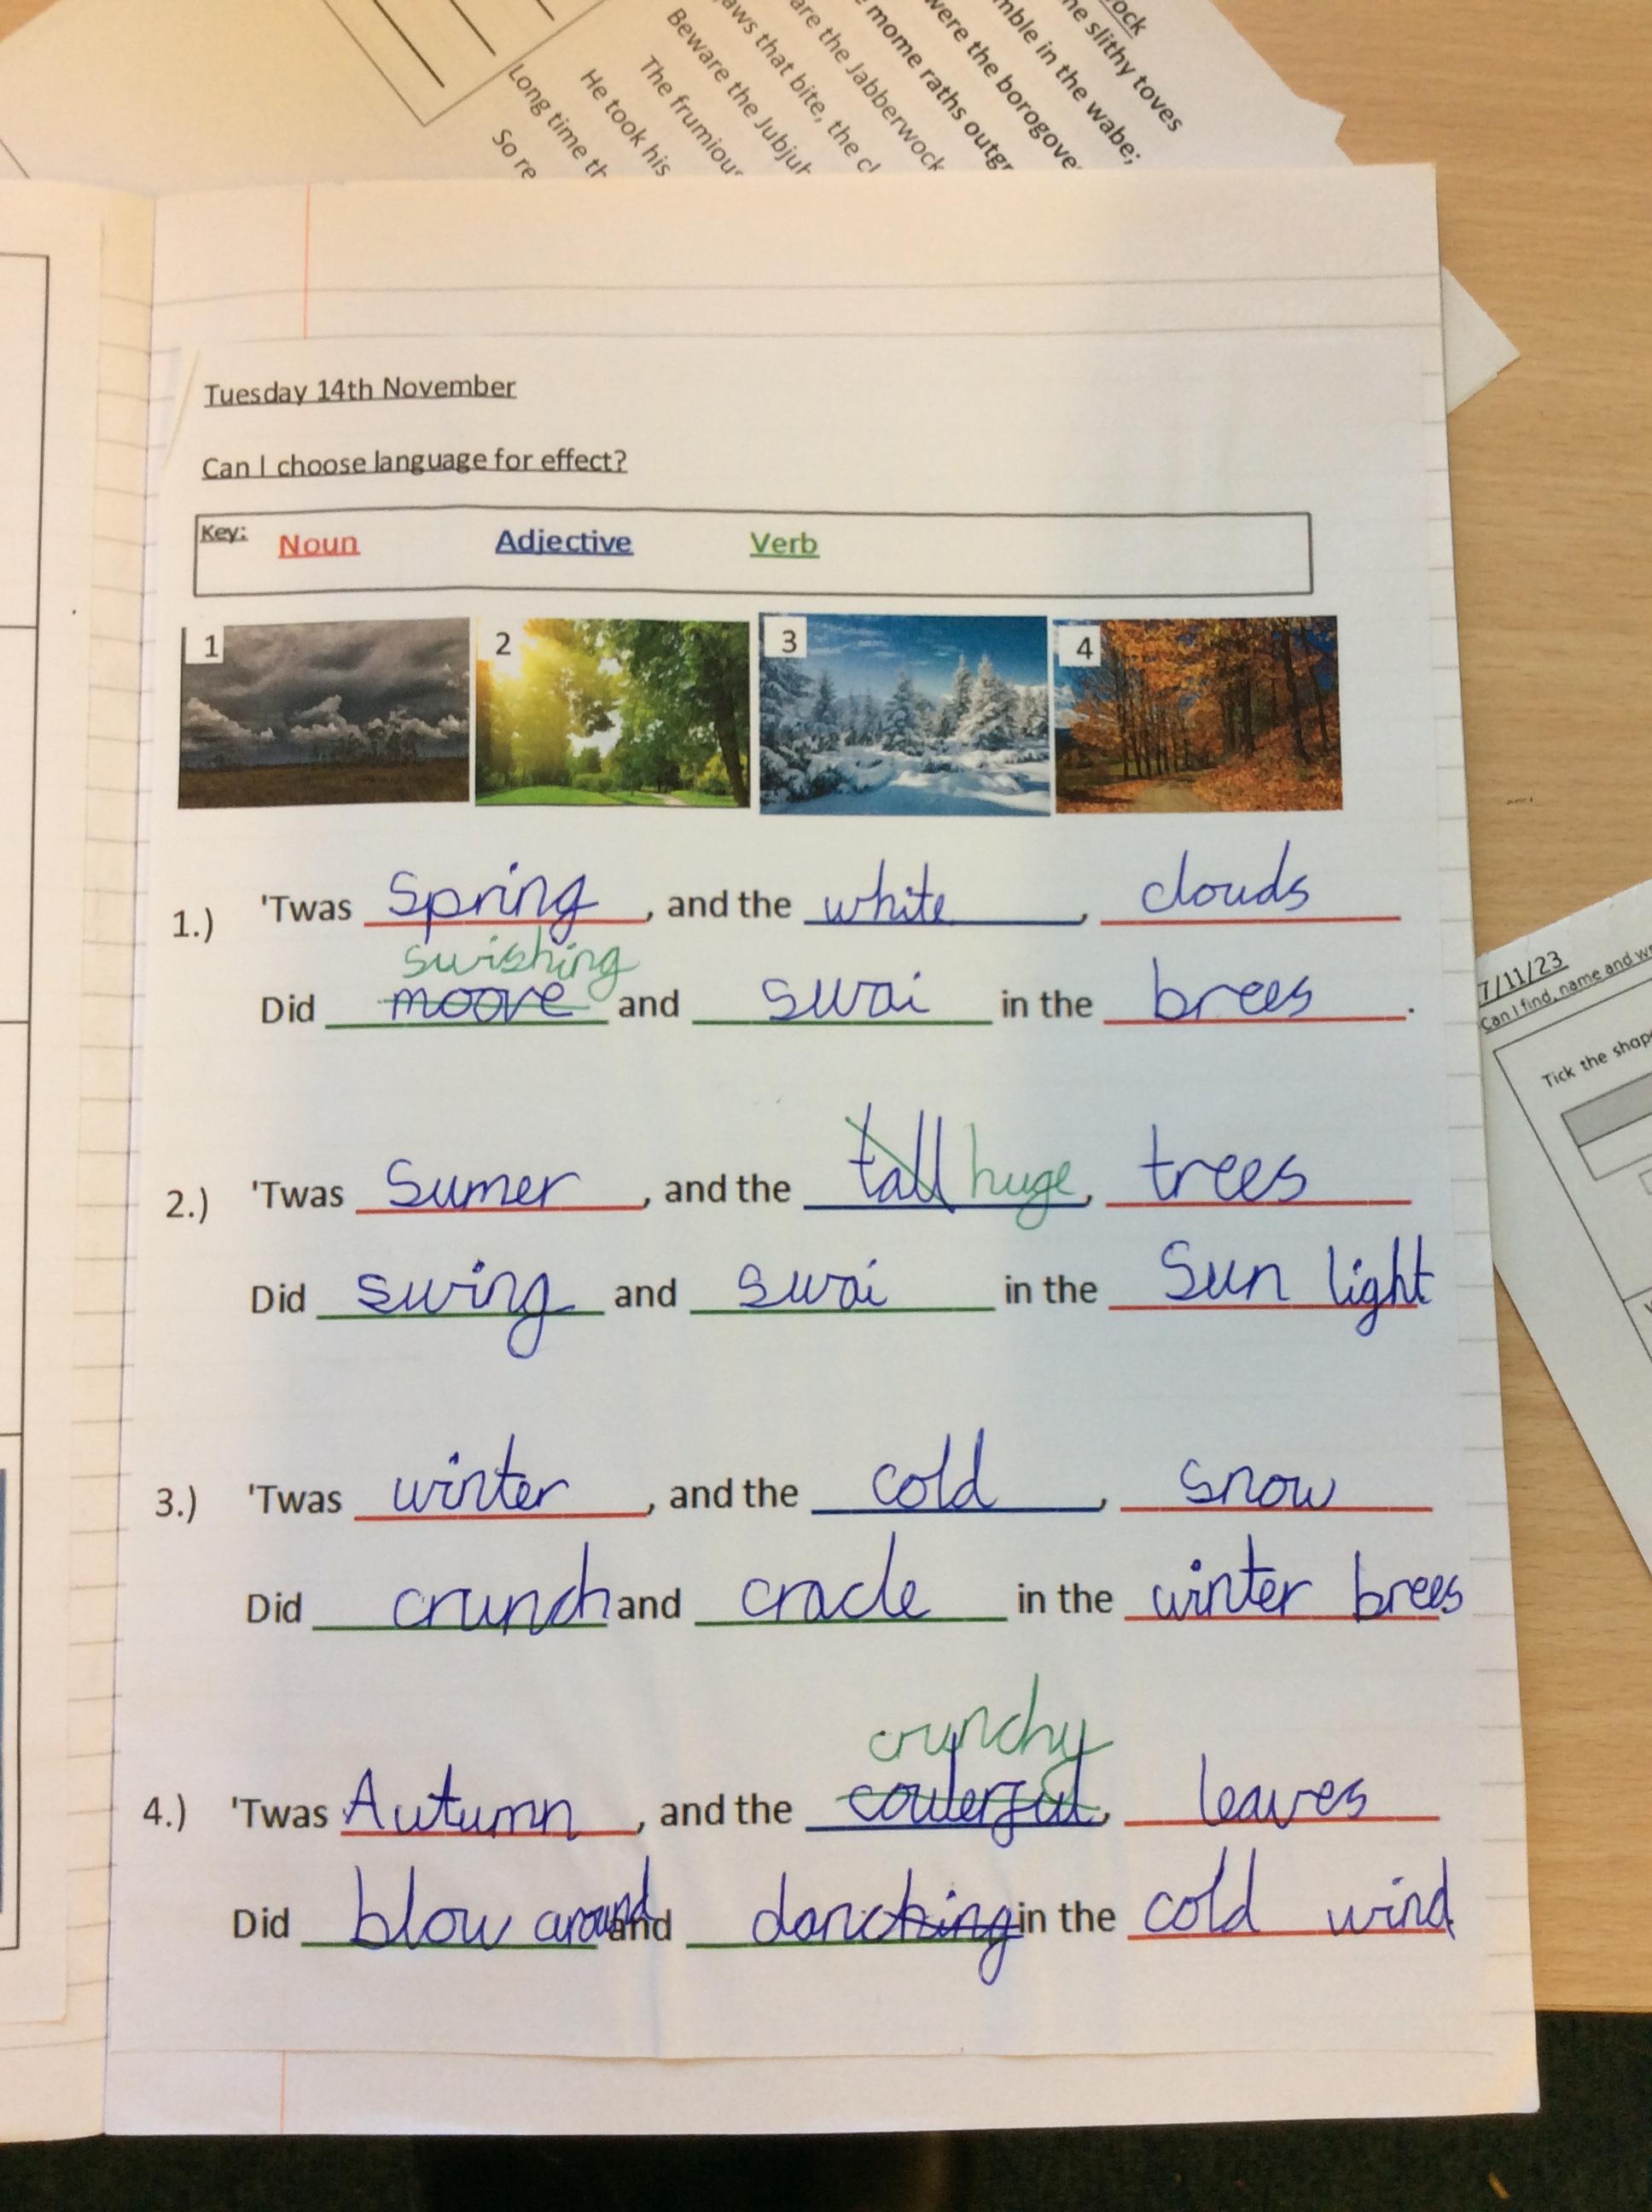 ock
he slithy toves
mble in the wabe;
were the borogove
mome raths outgr
are the Jabberwock
aws that bite, the cl
Beware the Jubjub
The frumious
He took his
Long time th
So re
Tuesday 14th November
Can I choose language for effect?
Key: Noun Adjective Verb
1 2 3 4
1.) 'Twas Spring, and the white, clouds
swishing
Did moove and swai in the brees.
2.) 'Twas Sumer, and the tall huge, trees
Did swing and swai in the Sun light
3.) 'Twas winter, and the cold, snow
Did crunch and cracle in the winter brees
crunchy
4.) 'Twas Autumn, and the coulerful, leaves
Did blow around and danching in the cold wind
7/11/23
Can I find, name and w
Tick the shap